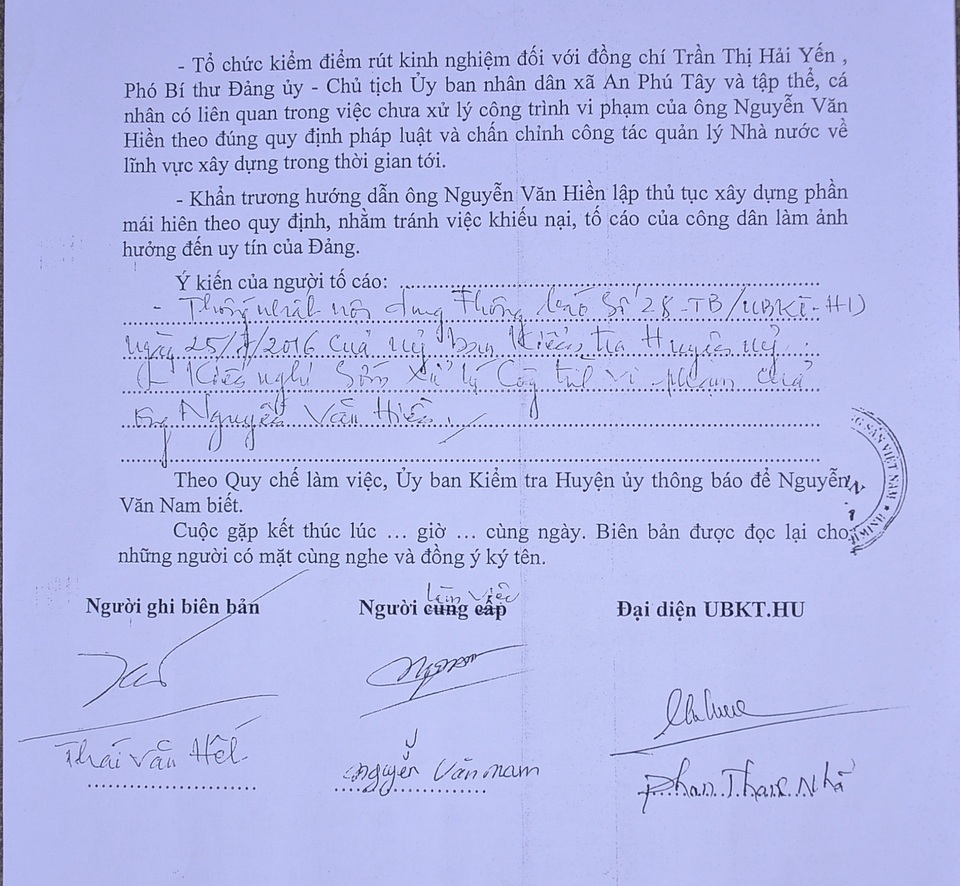 - Tổ chức kiểm điểm rút kinh nghiệm đối với đồng chí Trần Thị Hải Yến ,
Phó Bí thư Đảng ủy - Chủ tịch Ủy ban nhân dân xã An Phú Tây và tập thể, cá
nhân có liên quan trong việc chưa xử lý công trình vi phạm của ông Nguyễn Văn
Hiền theo đúng quy định pháp luật và chấn chỉnh công tác quản lý Nhà nước về
lĩnh vực xây dựng trong thời gian tới.
- Khẩn trương hướng dẫn ông Nguyễn Văn Hiền lập thủ tục xây dựng phần
mái hiên theo quy định, nhằm tránh việc khiếu nại, tố cáo của công dân làm ảnh
hưởng đến uy tín của Đảng.
Ý kiến của người tố cáo:
- Thống nhất nội dung Thông báo Số 28-TB/UBKT-HU
ngày 25/7/2016 của Uỷ ban Kiểm tra Huyện uỷ
Kiến nghị Sớm Xử lý Công trình vi phạm của
ông Nguyễn Văn Hiền.
Theo Quy chế làm việc, Ủy ban Kiểm tra Huyện ủy thông báo để Nguyễn
Văn Nam biết.
Cuộc gặp kết thúc lúc … giờ … cùng ngày. Biên bản được đọc lại cho
những người có mặt cùng nghe và đồng ý ký tên.
làm việc
Người ghi biên bản Người cung cấp Đại diện UBKT.HU
Thái Văn Hết Nguyễn Văn Nam Phan Thanh Nhã
G SẢN VIỆT NAM